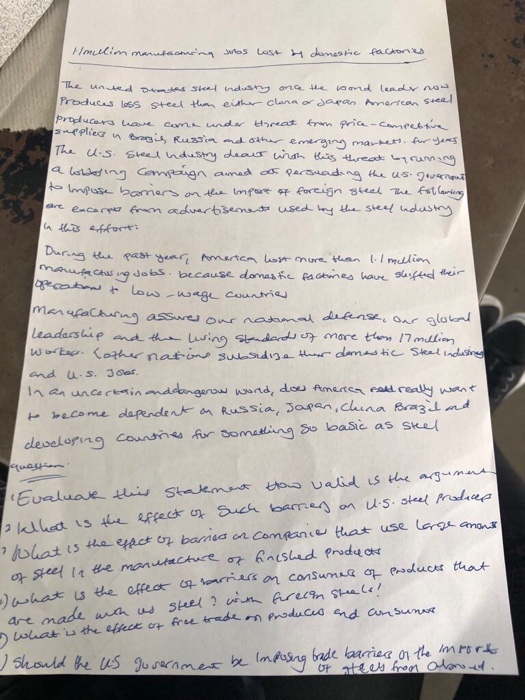 1 million manufacturing jobs lost by domestic factories
The united States steel industry once the world leader now
Produces less steel than either china or Japan American steel
Producers have come under threat from price-competitive
suppliers in Brazil, Russia and other emerging markets. for years
The U.S. Steel industry dealt with this threat by running
a lobbying Campaign aimed at persuading the U.S. government
to impose barriers on the import of foreign steel The following
are excerpts from advertisements used by the steel industry
in this effort:
During the past year, America lost more than 1.1 million
manufacturing jobs. because domestic factories have shifted their
operations to low-wage countries
Manufacturing assures our national defense, our global
leadership and the living standards of more than 17 million
worker. Cother nations subsidize their domestic steel industries
and U.S. Jobs.
In an uncertain and dangerous world, does America really want
to become dependent on Russia, Japan, China Brazil and
developing countries for something so basic as steel
question
1 Evaluate this statement How valid is the argument
2 What is the effect of such barriers on U.S. steel Producers
3 What is the effect of barriers on companies that use large amount
of steel in the manufacture of finished products
) what is the effect of barriers on consumers of products that
are made with us steel? with foreign steels!
) what is the effect of free trade on producers and consumers
) should the US government be imposing trade barriers on the import
of steels from abroad.